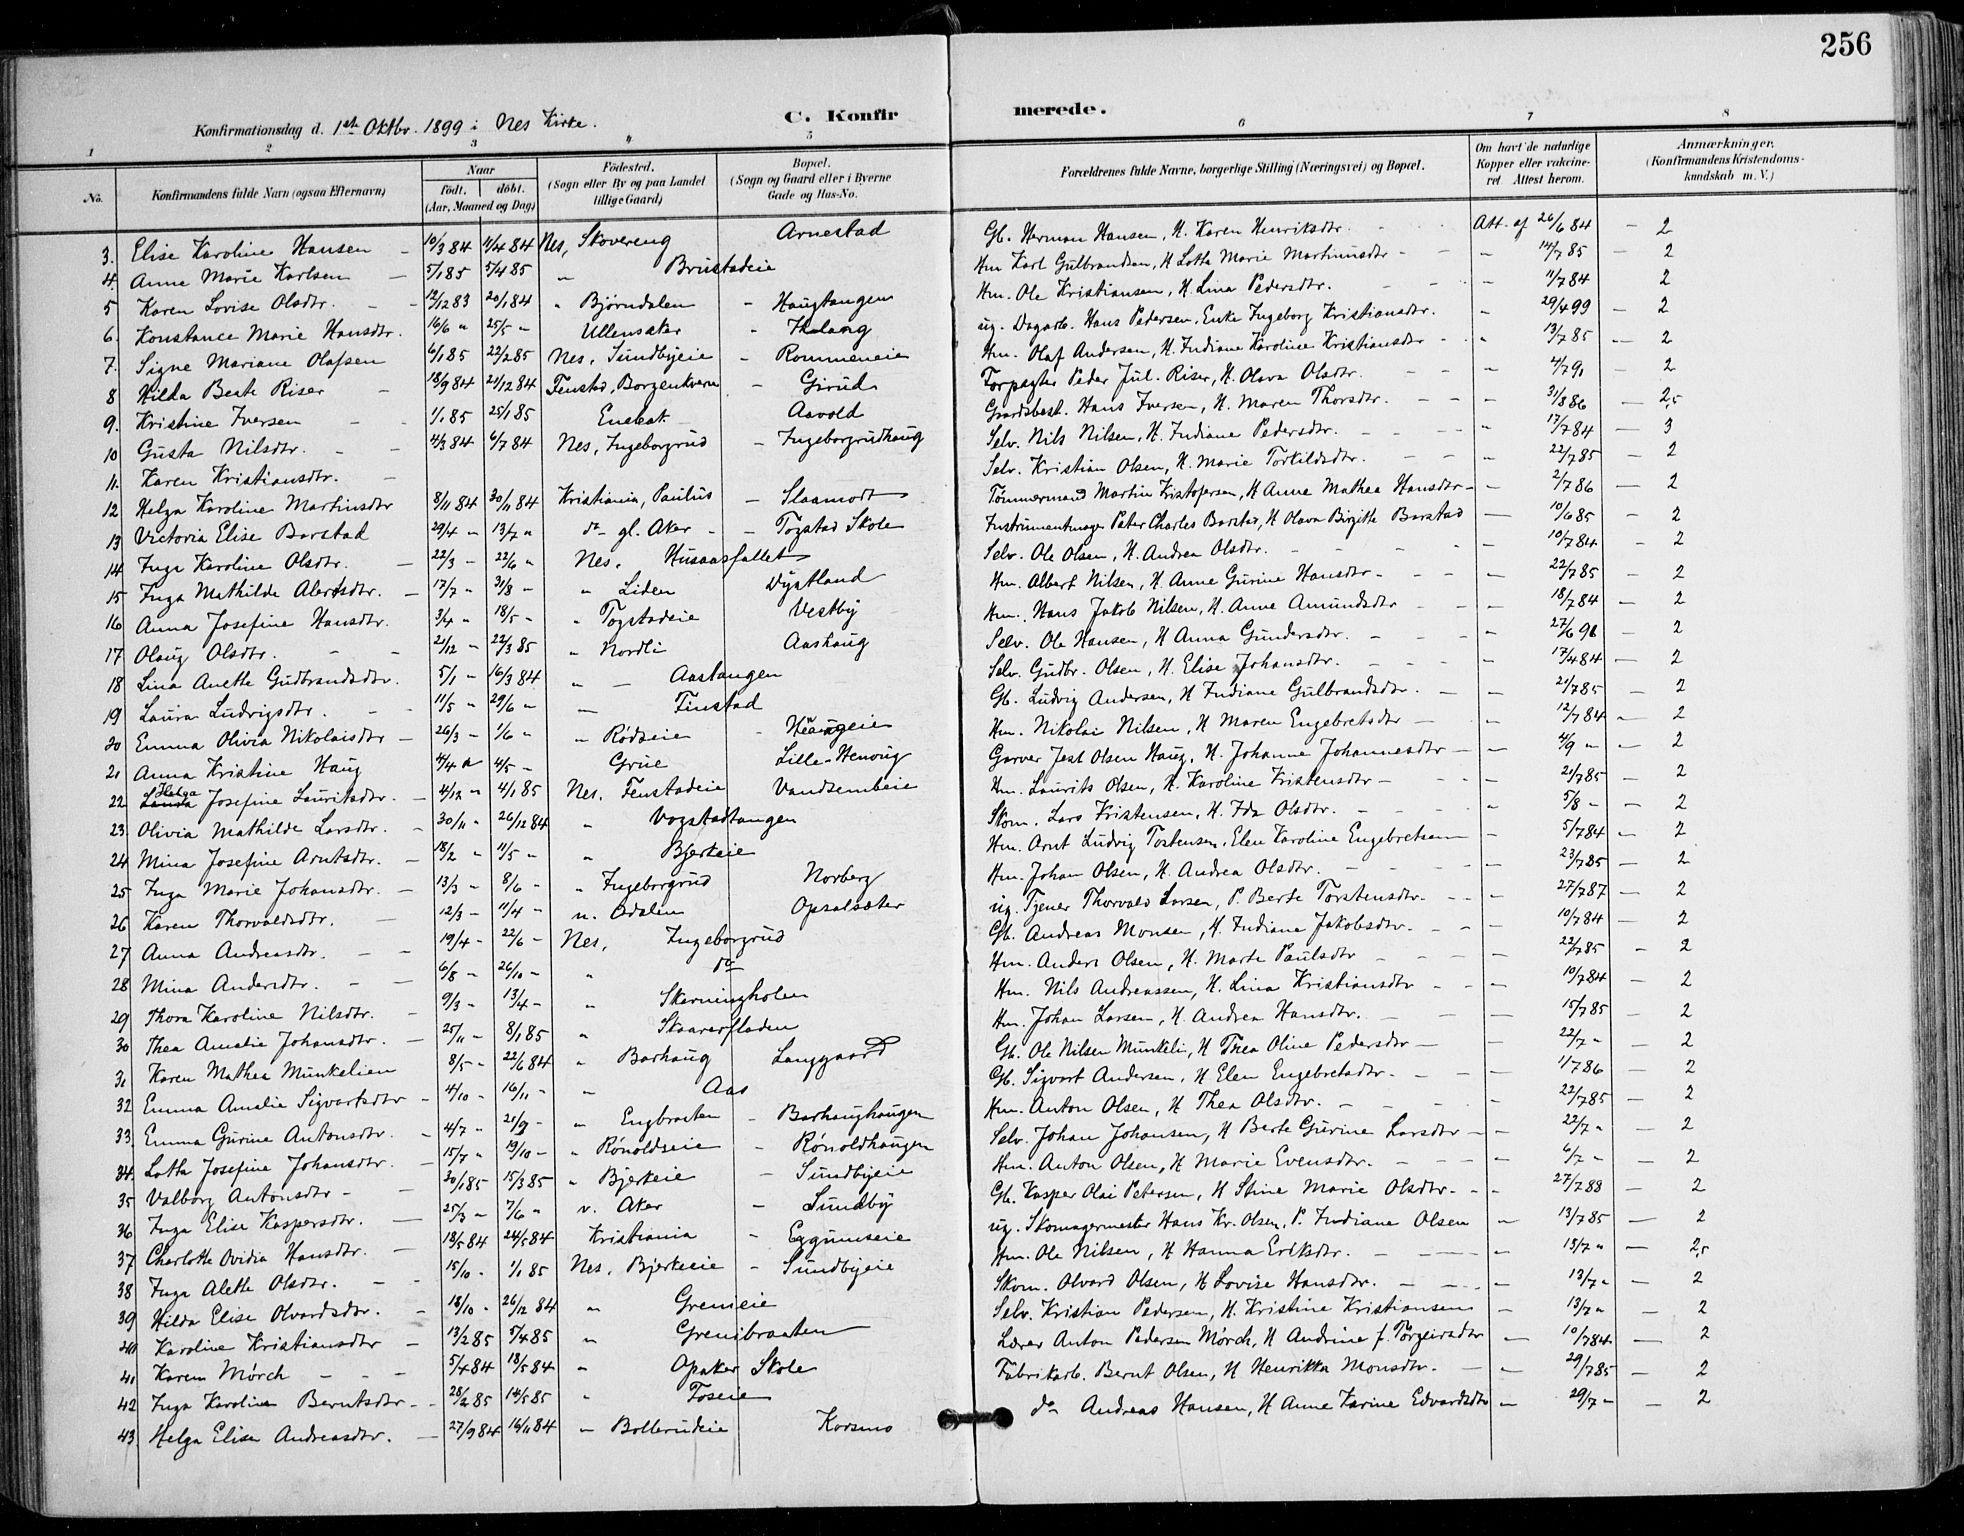 256
Konfirmationsdag d. 1ste Oktbr. 1899 i Nes Kirke. C. Konfirmerede.
1 2 3 4 5 6 7 8
No. Konfirmandens fulde Navn (ogsaa Efternavn) Naar født. døbt. (Aar, Maaned og Dag) Fødested. (Sogn eller By og paa Landet tillige Gaard) Bopæl. (Sogn og Gaard eller i Byerne Gade og Hus-No. Forældrenes fulde Navne, borgerlige Stilling (Næringsvei) og Bopæl. Om havt de naturlige Kopper eller vakcineret. Attest herom. Anmærkninger. (Konfirmandens Kristendomskundskab m. V.)
3. Elise Karoline Hansen – 10/3 84 11/4 84 Nes, Skovereng Arnestad Gb. Herman Hansen, H. Karen Henriksdtr. Att. af 26/6 84 – 2
4. Anne Marie Karlsen – 5/1 85 5/4 85 " Brustadeie Hm Karl Gulbrandsen, H Lotta Marie Martinusdtr – " 14/7 85 – 2
5 Karen Lovise Olsdtr. – 12/12 83 20/1 84 " Bjørndalen – Haugtangen Hm. Ole Kristiansen, H. Lina Pedersdtr. – 11/7 84 2
6. Konstance Marie Hansdtr. 16/6 " 25/5 " Ullensaker – ug. Dagarb. Hans Pedersen, Enke Ingeborg Kristiansdtr. " 29/4 99 – 2
7. Signe Mariane Olafsen 6/1 85 22/2 85 Nes, Sundbyeie – Rommeneie Hm. Olaf Andersen, H. Indiane Karoline Kristiansdtr – " 13/7 85 – 2
8 Hilda Beate Riser – 18/9 84 21/12 84 Fenstad, Borgenkvern – Girud Forpagter Peder Jul. Riser, H. Olava Olsdtr. – 4/7 91 – 2
9. Kristine Iversen – 1/1 85 25/1 85 Enebak Aavold Gaardsbest. Hans Iversen, H. Maren Thorsdtr. – " 31/8 86 – 2,5
10 Gusta Nilsdtr. – 4/3 84 6/7 84 Nes, Ingeborgrud – Ingeborgrudhaug Selv. Nils Nilsen, H. Indiane Pedersdtr. – " 17/7 84 – 3
11. Karen Kristiansdtr. – Selv. Kristian Olsen, H. Marie Torkildsdtr. – " 22/7 85 – 2
12 Helga Karoline Martinsdtr 8/11 84 30/11 84 Kristiania, Paulus – Slaamodt Tømmermand Martin Kristofersen, H Anne Mathea Hansdtr – – 2/7 86 – 2
13 Victoria Elise Barstad 29/4 " 13/7 " do gl. Aker – Togstad Skole Instrumentmager Peter Charles Barstad, H Olava Birgitte Barstad – 10/6 85 – 2
14 Inga Karoline Olsdtr. – 22/3 – 22/6 " Nes. Husaasfallet Selv. Ole Olsen, H. Andrea Olsdtr. – 10/7 84 – 2
15 Inga Mathilde Albertsdtr. – 17/7 " 31/8 – " Liden Dystland Hm. Albert Nilsen, H. Anne Gurine Hansdtr. – – 22/7 85 – 2
16 Anna Josefine Hansdtr. 3/4 " 18/5 – " Togstadeie Vestby Hm. Hans Jakob Nilsen, H. Anne Amundsdtr – – 18/7 84 – 2
17 Olaug Olsdtr. – 21/12 – 22/3 85 " Nordli Aashaug Selv. Ole Hansen, H Anna Gundersdtr. – " 27/6 98 – 2
18 Lina Anette Gudbrandsdtr. 5/1 – 16/3 84 " – Aastangen Selv. Gudbr. Olsen, H. Elise Johansdtr. – – 17/4 84 – 2
19 Laura Ludvigsdtr. – 11/5 " 29/6 " – Finstad Gb. Ludvig Andersen, H Indiane Gulbrandsdtr. – – 21/7 85 – 2
20 Emma Olivia Nikolaisdtr – 26/3 – 1/6 – " Rødseie – Haugeie Hm. Nikolai Nilsen, H Maren Engebretsdtr – – 12/7 84 – 2
21 Anna Kristine Haug 4/4 " 4/5 – Grue Lille-Henoug Garver Jest Olsen Haug, H. Johanne Johannesdtr – – 4/9 " – 2
22 Helga Josefine Lauritsdtr. – 4/12 " 4/1 85 Nes. Fenstadeie Vandsembeie Hm. Laurits Olsen, H. Karoline Kristensdtr – – 21/7 85 – 2
23. Olivia Mathilde Larsdtr. – 30/11 " 26/12 84 " Vogstadtangen Skom. Lars Kristensen, H. Ida Olsdtr. – " 5/8 – – 2
24 Mina Josefine Arntsdtr. – 18/2 " 11/5 – " Bjerkeie Hm. Arnt Ludvig Tostensen, Elen Karoline Engebretsen – 5/7 84 – 2
25 Inga Marie Johansdtr. – 13/3 – 8/6 – " Ingeborgrud Norberg Hm. Johan Olsen, H. Andrea Olsdtr. – 23/7 85 – 2
26 Karen Thorvaldsdtr. – 12/3 – 11/4 – n. Odalen Opsalsæter ug. Tjener Thorvald Larsen, P. Berte Torstensdtr. – – 27/7 87 – 2
27 Anna Andreasdtr. – – 19/4 – 22/6 – Nes, Ingeborgrud Gb. Andreas Monsen, H. Indiane Jakobsdtr. – – 10/7 84 – 2
28 Mina Andersdtr. – – 6/8 – 26/10 – " do Hm. Anders Olsen, H. Marte Paulsdtr – – 22/7 85 – 2
29 Thora Karoline Nilsdtr. – 9/3 – 13/4 – " Skerningholen Hm. Nils Andreassen, H. Lina Kristiansdtr – – 10/7 84 – 2
30 Thea Amalie Johansdtr. – 25/11 – 8/1 85 " Skaarerfladen Hm. Johan Larsen, H. Andrea Hansdtr. – – 15/7 85 – 2
31 Karen Mathea Munkelien 8/5 – 22/6 84 " Barhaug Langgaard Gb. Ole Nilsen Munkeli, H Thea Oline Pedersdtr – – 22/7 – – 2
32 Emma Amalie Sigvartsdtr – 4/10 – 16/11 – " Aas Gb. Sigvart Andersen, H Elen Engebretsdtr. – – 1/7 86 – 2
33. Emma Gurine Antonsdtr. – 4/7 – 21/9 – " Engbraaten – Barhaughaugen Hm. Anton Olsen, H Thea Olsdtr. – – 22/7 85 – 2
34. Lotta Josefine Johansdtr. – 15/7 " 19/10 – " Rónoldseie – Rónoldhaugen Selv. Johan Johansen, H Berte Gurine Larsdtr – – 22/7 " – 2
35 Valborg Antonsdtr – – 20/1 85 15/3 85 " Bjerkeie – Sundbyeie Hm. Anton Olsen, H Marie Evensdtr. – – 6/7 – – 2
36 Inga Elise Kaspersdtr. – 25/3 – 7/6 " v. Aker – Sundby Gb. Kasper Olai Petersen, H Stine Marie Olsdtr. – – 27/7 88 – 2
37 Charlotte Ovidia Hansdtr. – 18/5 84 24/5 84 Kristiania – Eggumseie ug. Skomagermester Hans Kr. Olsen, P. Indiane Olsen – 13/7 85 – 2
38 Inga Alette Olsdtr. – – 15/10 – 1/1 85 Nes. Bjerkeeie – Sundbyeie Hm. Ole Nilsen, H Hanna Eriksdtr. – – 13/7 " – 2,5
39 Hilda Elise Olvardsdtr. – 18/10 – 26/12 84 " Greneie Skom. Olvard Olsen, H Lovise Hansdtr. – – 13/7 – – 2
40 Karoline Kristiansdtr – 13/2 85 5/4 85 " Grenibraaten Selv. Kristian Pedersen, H. Kristine Kristiansen – 13/7 " – 2
41 Karen Mørch – – – 5/4 84 18/5 84 " Opaker Skole Lærer Anton Pedersen Mørch, H Andrine f. Torgeirsdtr – 10/7 84 – 2
42 Inga Karoline Berntsdtr – – 28/2 85 14/5 85 " Foseie Fabrikarb. Bernt Olsen, H Henrikka Monsdtr. – – 29/7 85 – 2
43 Helga Elise Andreasdtr. – 27/9 84 16/11 84 – Bollerudeie Korsmo do Andreas Hansen, H Anne Karine Edvardsdtr – 29/7 – – 2